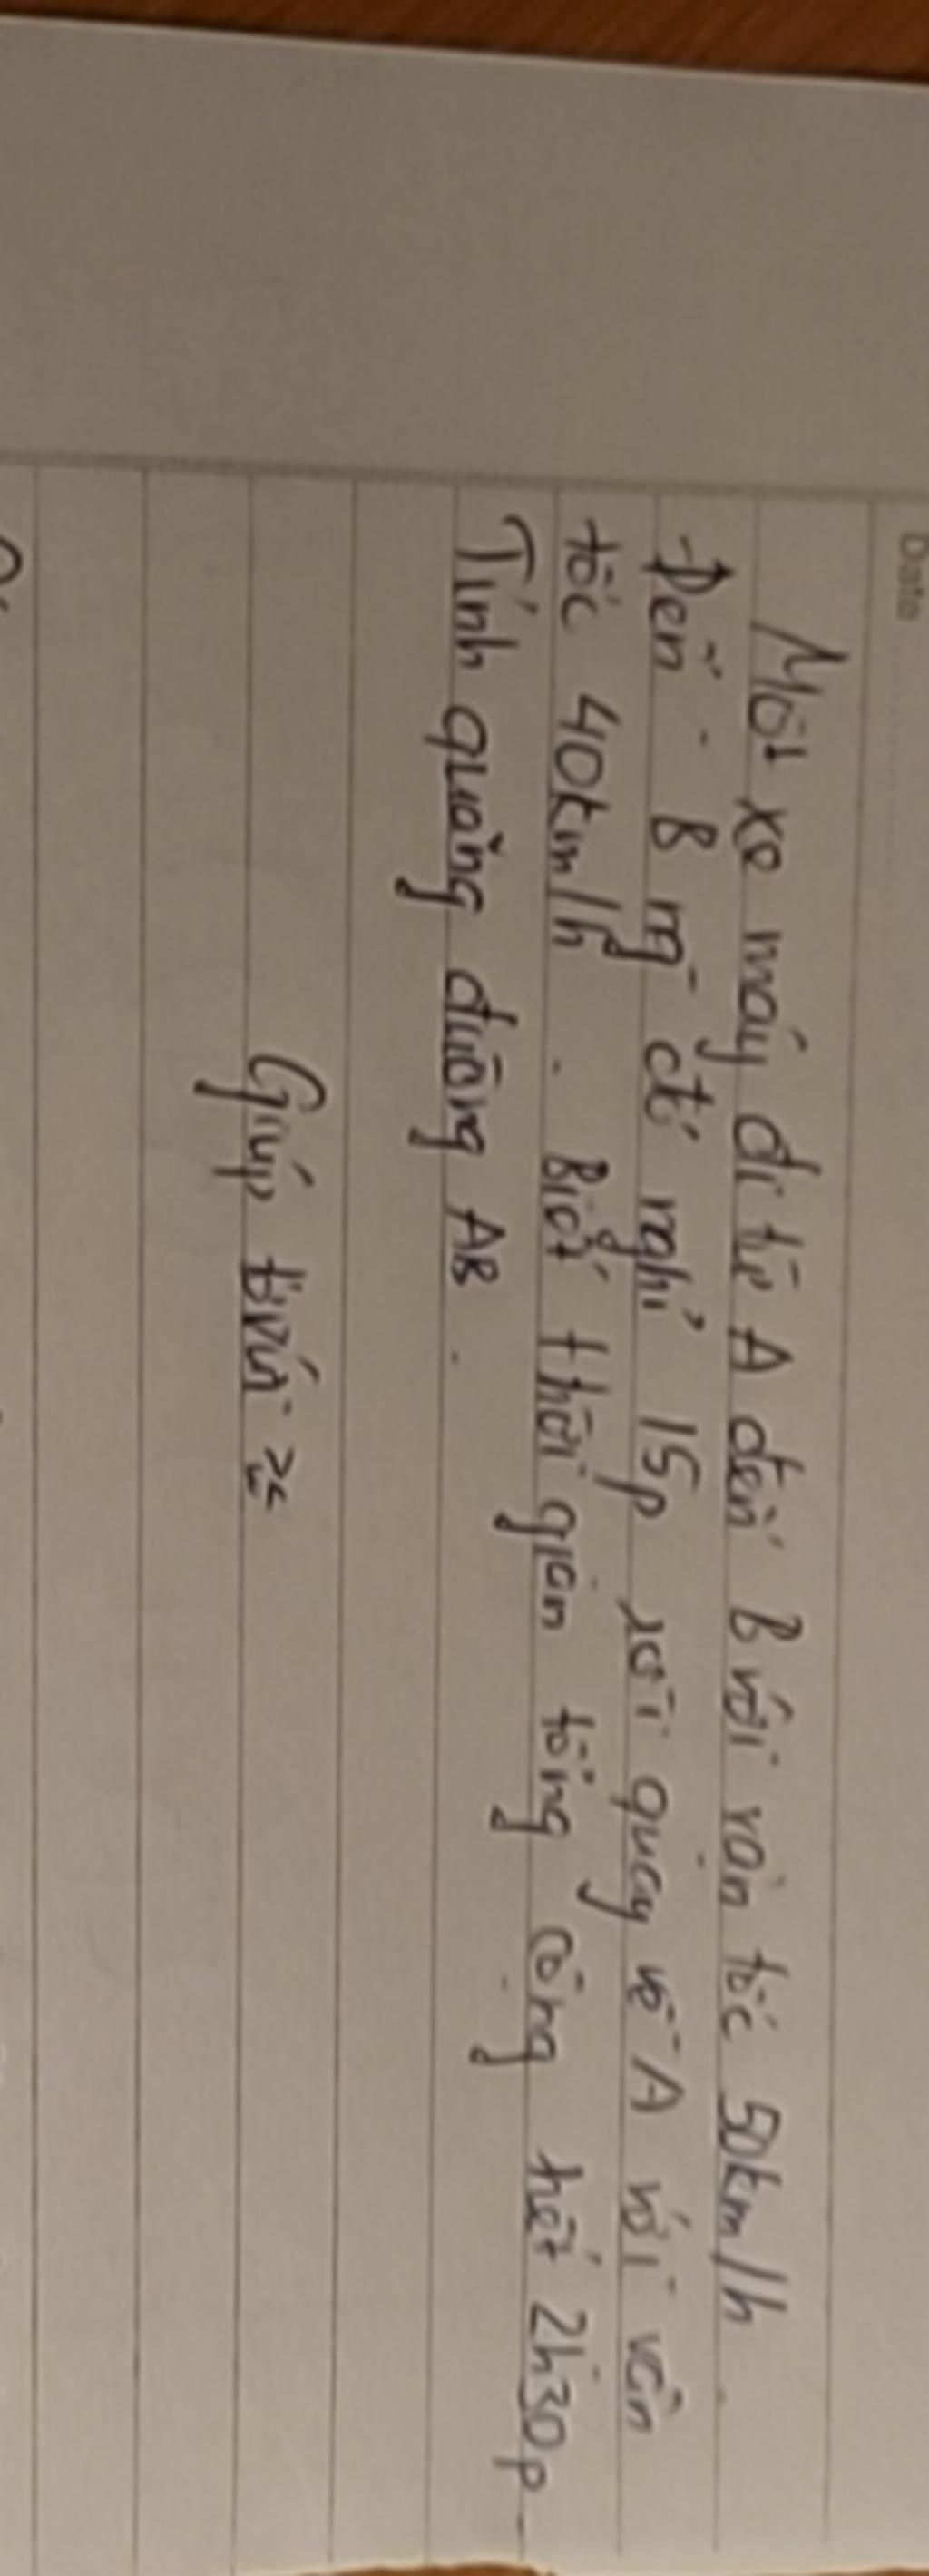 Date
Một xe máy đi từ A đến B với vận tốc 50km/h.
Đến B ng đó nghỉ 15p rồi quay về A với vận
tốc 40km/h. Biết thời gian tổng cộng hết 2h30p.
Tính quãng đường AB.
Giúp với